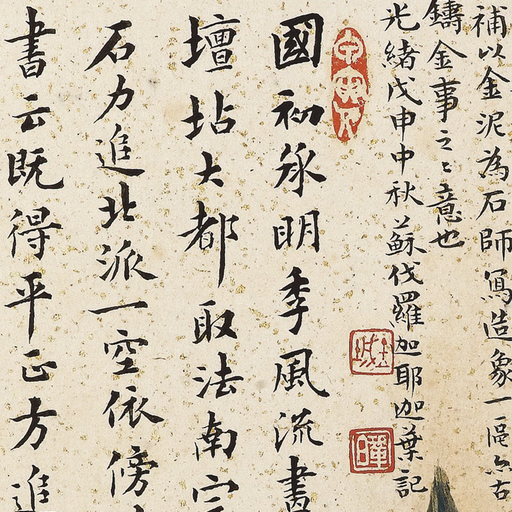 補以金泥為石師寫造象一區亦古
鑄金事之之意也
光緒戊申中秋蘇伐羅加耶迦葉記
國初承明季風流書
壇坫大都取法南宗
石力追北派一空依傍
書云既得平正方追